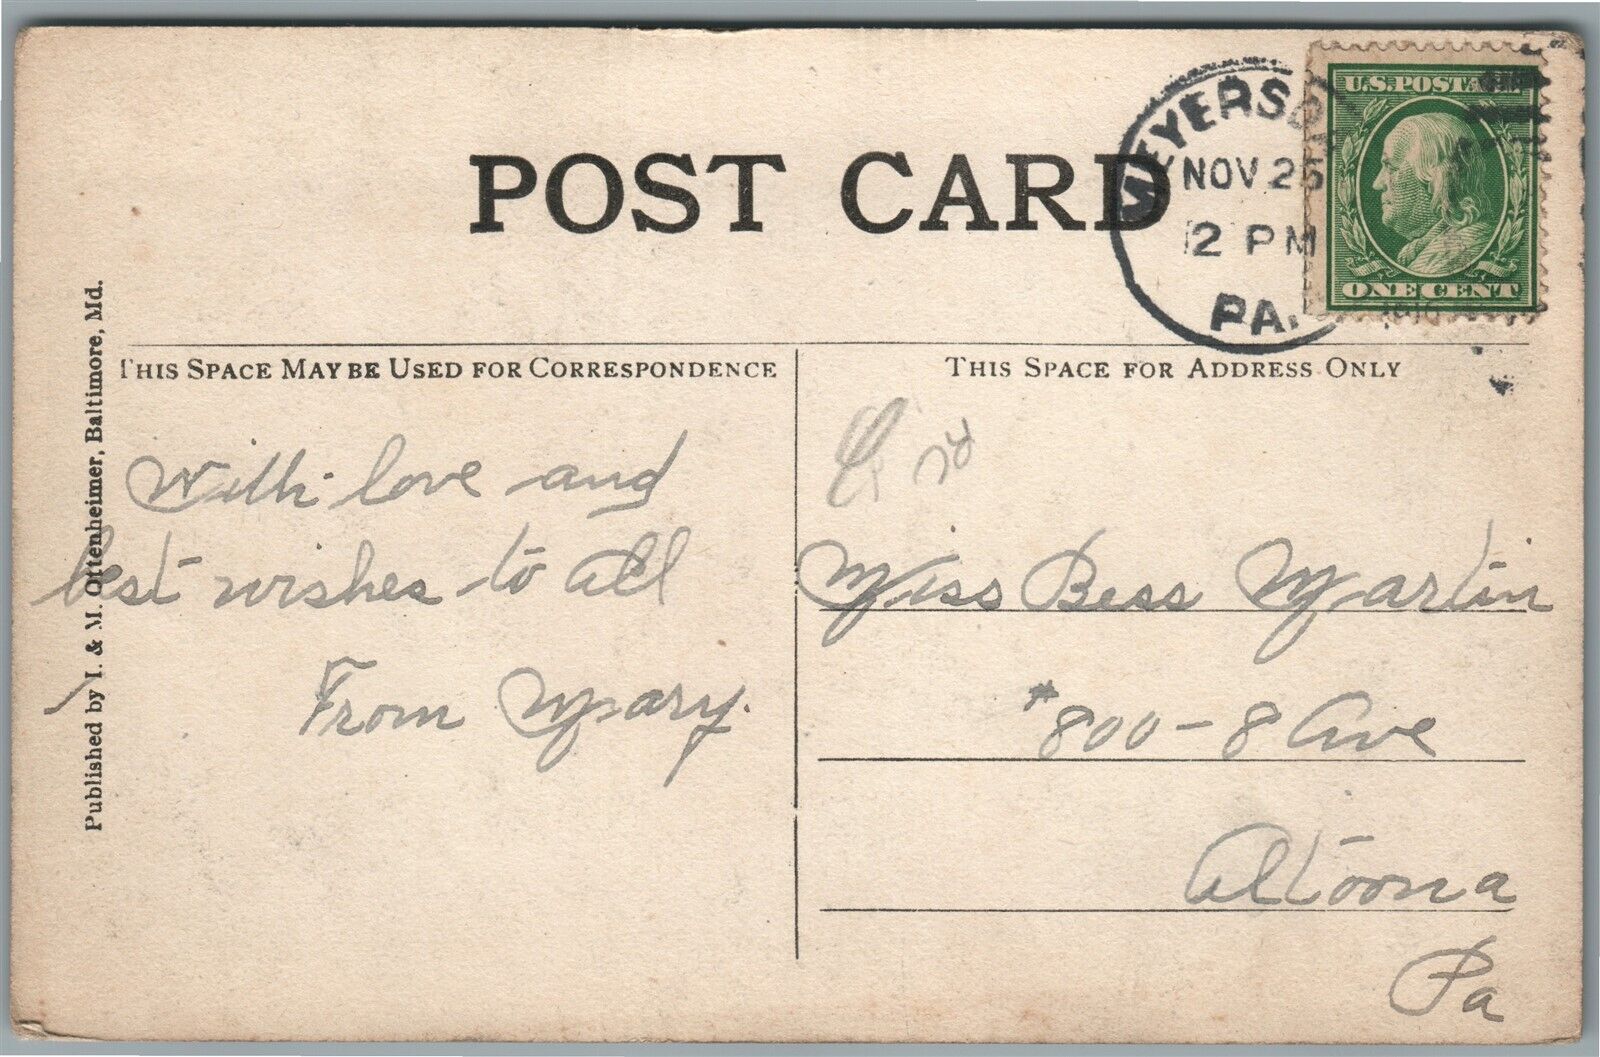 POST CARD
MEYERSDA
NOV 25
2 PM
PA.
U.S. POSTAGE
ONE CENT
THIS SPACE MAY BE USED FOR CORRESPONDENCE
THIS SPACE FOR ADDRESS ONLY
Published by I. & M. Ottenheimer, Baltimore, Md.
With love and
best wishes to all
From Mary.
Miss Bess Martin
#800-8 Ave
Altoona
Pa